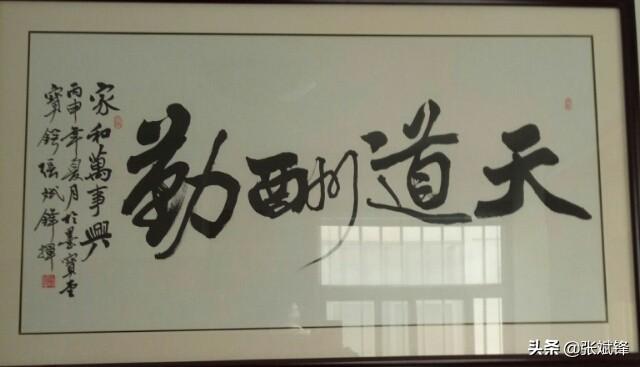 天道酬勤
家和萬事興
丙申年夏月於墨寶堂
張斌鋒揮
头条 @张斌锋